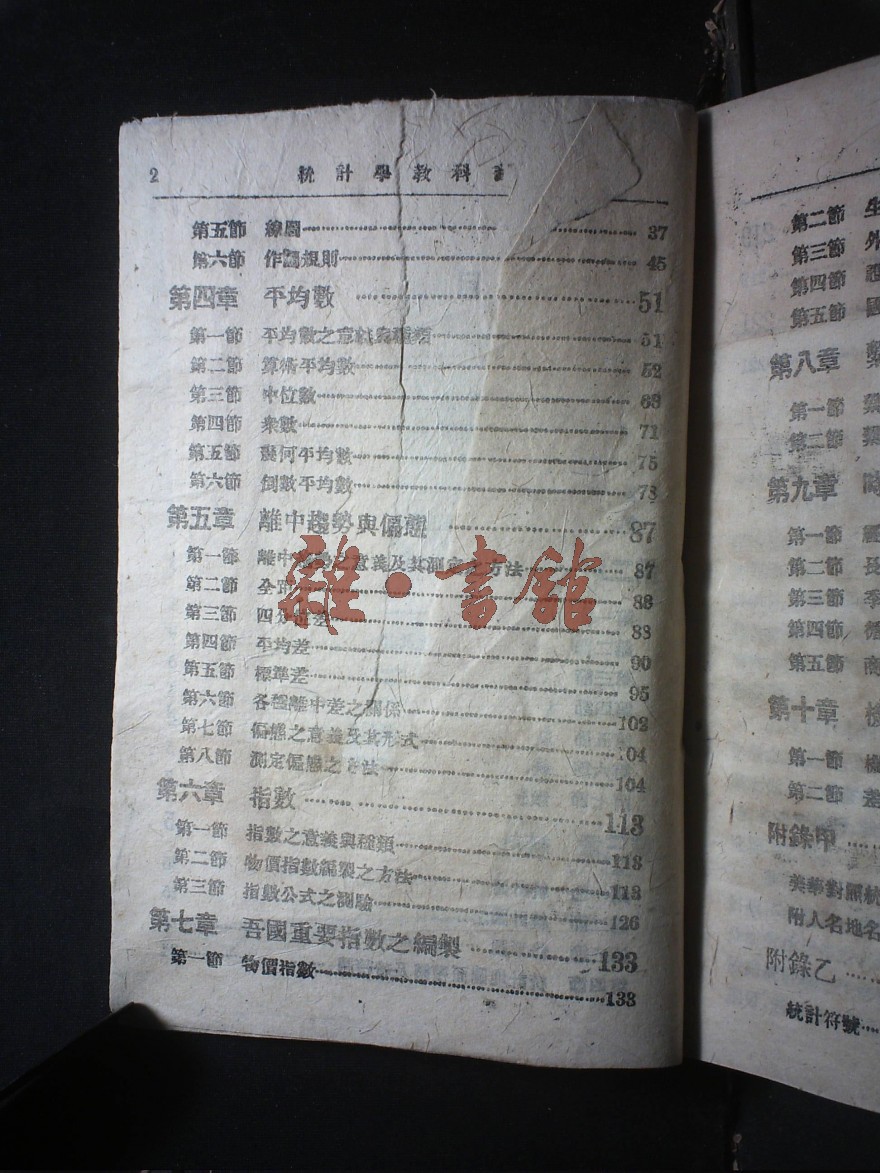 2 統計學教科
第五節 線圖 37
第六節 作圖規則 45
第四章 平均數 51
第一節 平均數之意義與種類 51
第二節 算術平均數 52
第三節 中位數 68
第四節 衆數 71
第五節 幾何平均數 75
第六節 倒數平均數 78
第五章 離中趨勢與偏態 87
第一節 離中 意義及其測定之方法 87
第二節 全距 88
第三節 四分位差 88
第四節 平均差 90
第五節 標準差 95
第六節 各種離中差之關係 102
第七節 偏態之意義及其形式 104
第八節 測定偏態之方法 104
第六章 指數 113
第一節 指數之意義與種類 113
第二節 物價指數編製之方法 118
第三節 指數公式之測驗 126
第七章 吾國重要指數之編製 133
第一節 物價指數 133
雜·書館
第二節 生
第三節 外
第四節
第五節 國
第八章
第一節
第二節
第九章 時
第一節
第二節 長
第三節 季
第四節 循
第五節 商
第十章 機
第一節 機
第二節 差
附錄甲
英華對照統
附人名地名
附錄乙
統計符號